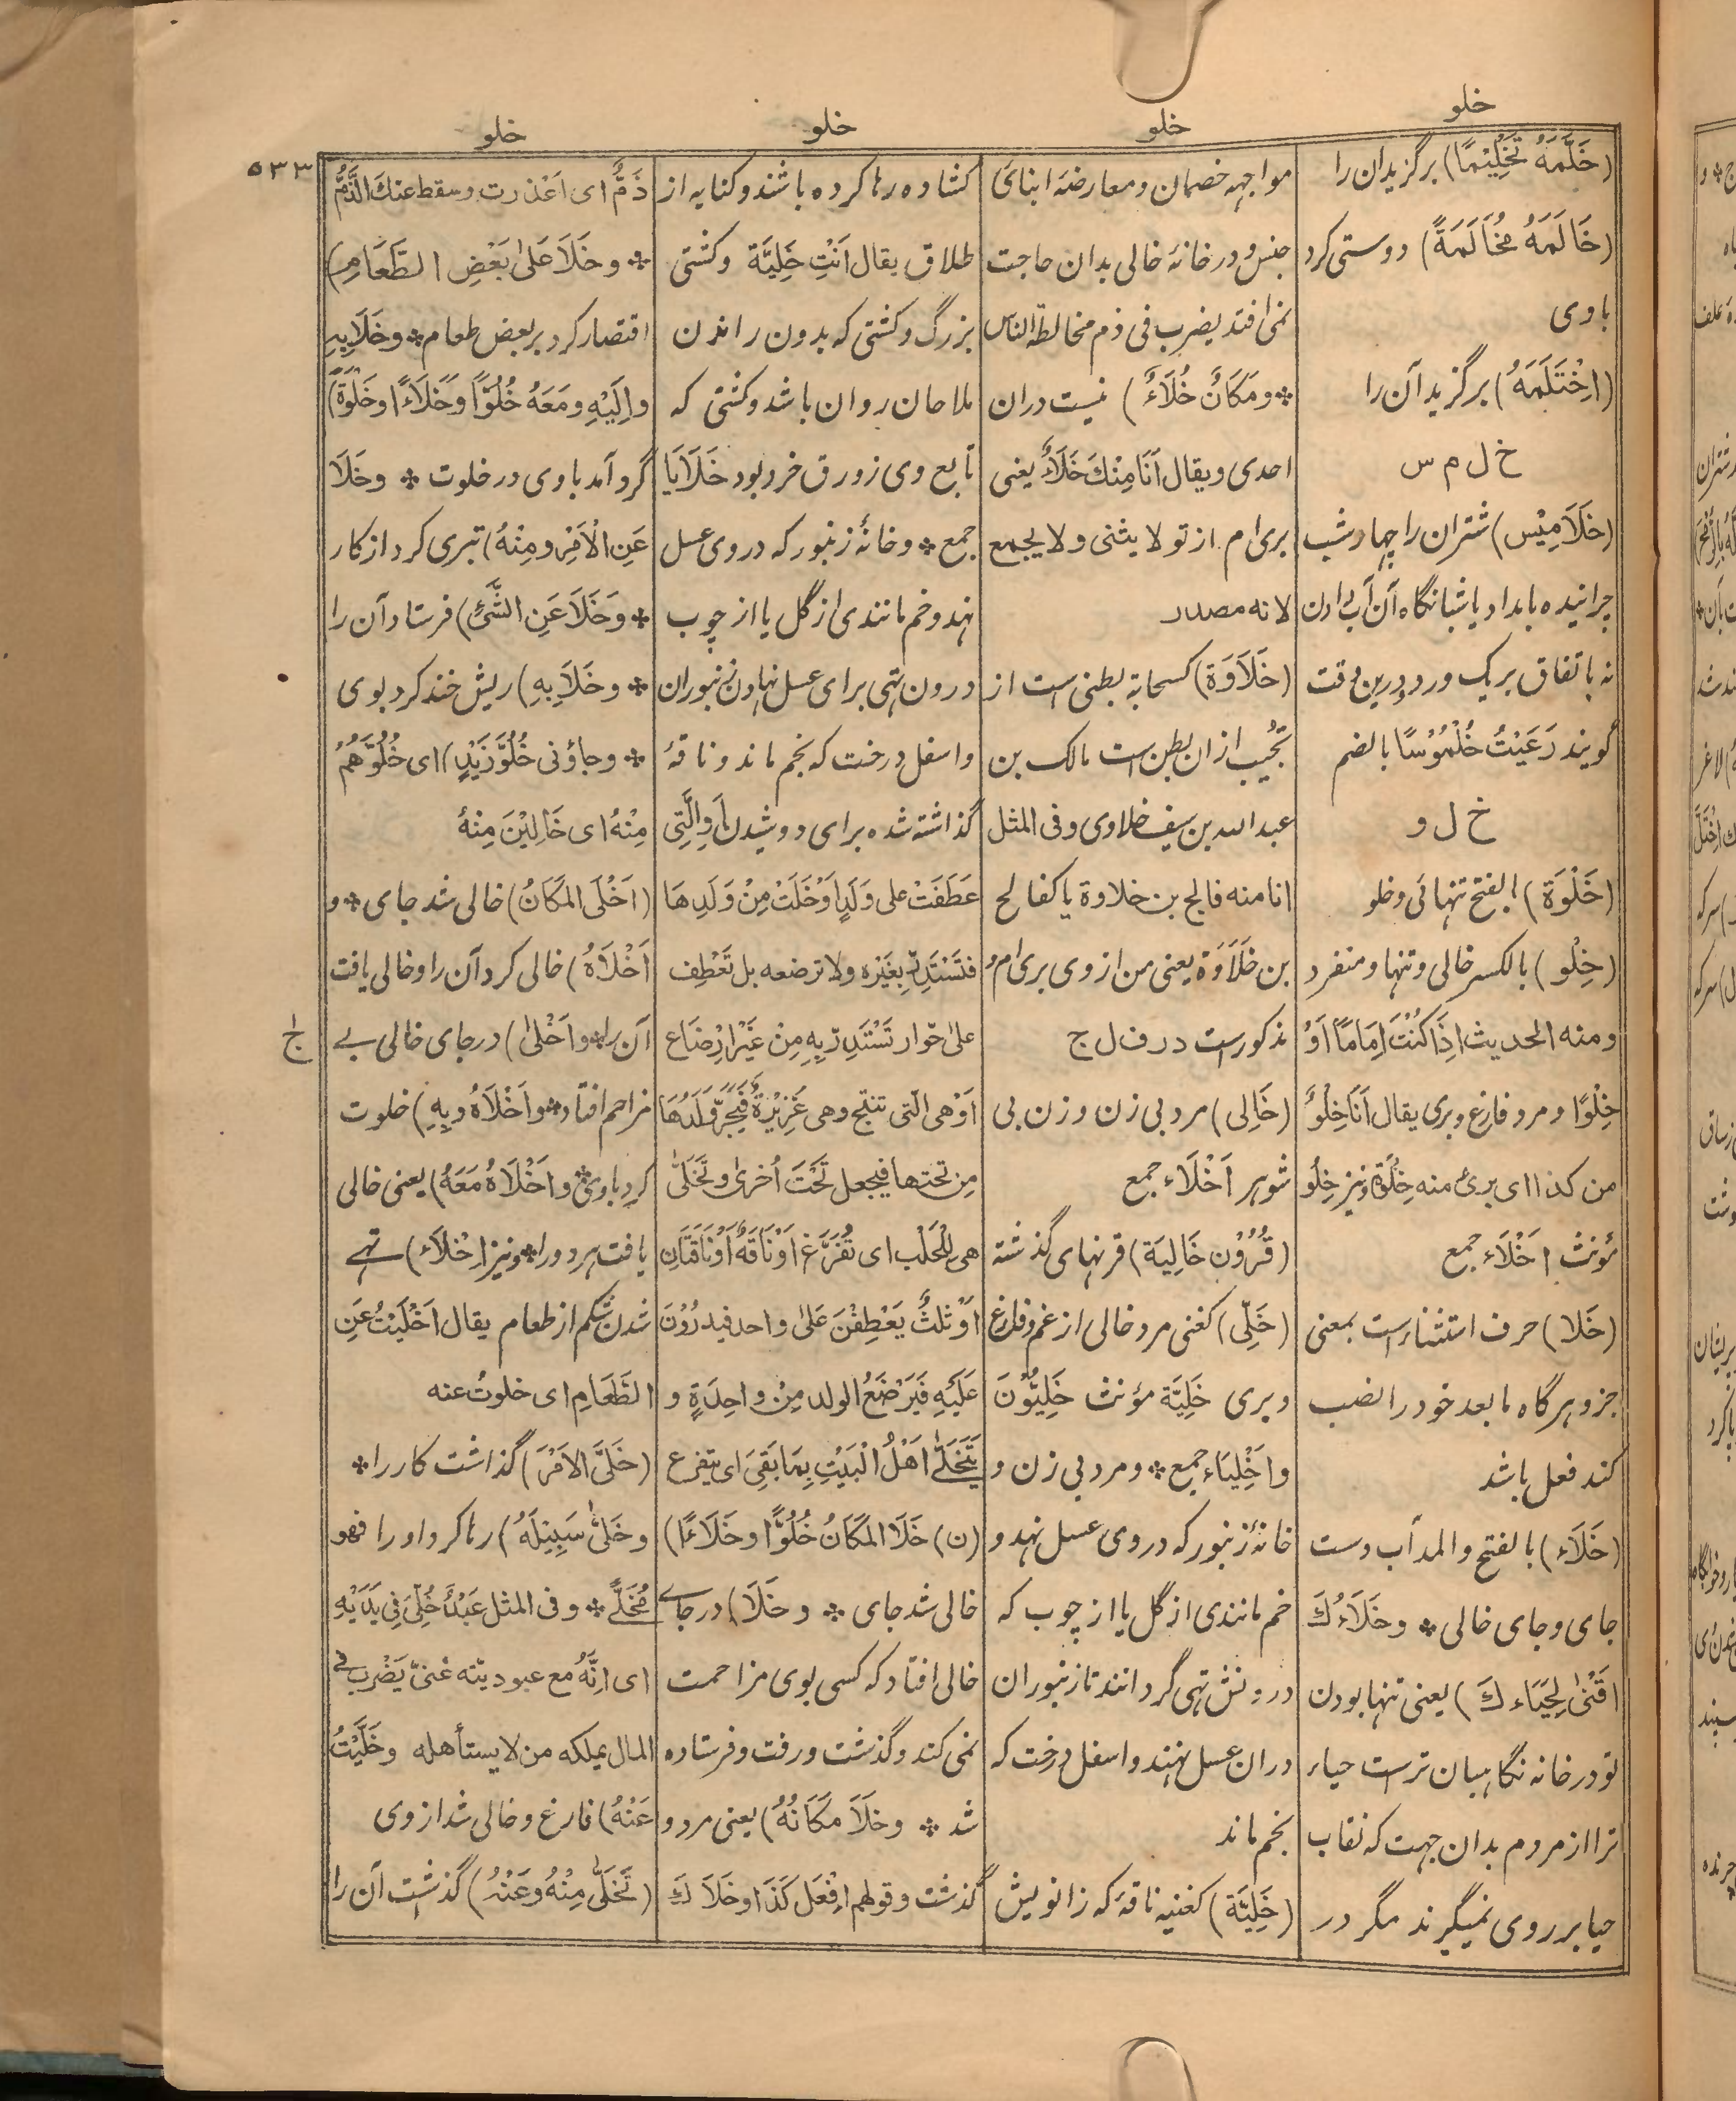 خلو
خلو
خلو
خلو
٥٣٣
(خَلَّمَهُ تَخْلِيْمًا) برگزیدان را
(خَالَمَهُ مُخَالَمَةً) دوستی کرد
با وی
(اِخْتَلَمَهُ) برگزید آن را
خ ل م س
(خَلَامِيْس) شتران را چهار شب
چرانیده بامداد یا شبانگاه آن آب دادن
نه باتفاق بر یک ورد و درین وقت
گویند رَعَيْتُ خُلْمُوْسًا بالضم
خ ل و
(خَلْوَة) بالفتح تنهائی و خلو
(خِلْو) بالکسر خالی و تنها و منفرد
ومنه الحدیث اِذَا كُنْتَ اِمَامًا اَوْ
خِلْوًا و مرد فارغ و بری یقال اَنَا خِلْوٌ
من کذا ای بریٔ منه خِلْوَة و نیز خِلْو
مؤنث اَخْلَاء جمع
(خَلَا) حرف استثناء است بمعنی
جز و هرگاه مابعد خود را نصب
کند فعل باشد
(خَلَاء) بالفتح والمد آب دست
جای و جای خالی ❊ وخَلَاءُكَ
اَقْنٰی لِحَيَاءِكَ) یعنی تنها بودن
تو در خانه نگاهبان ترست حیاء
ترا از مردم بدان جهت که نقاب
حیا بر روی نمیگیرند مگر در
مواجهه خصمان و معارضهٔ ابنای
جنس و در خانهٔ خالی بدان حاجت
نمی افتد یضرب فی ذم مخالطة الناس
❊ ومَكَانٌ خَلَاءٌ) نیست دران
احدی و یقال اَنَا مِنْكَ خَلَاءٌ یعنی
بری ام از تو لا یثنی و لا یجمع
لانه مصدر
(خَلَاوَة) کسحابة بطنی است از
تُجِيْب ازان بطن است مالک بن
عبد الله بن سیف خلاوی و فی المثل
انا منه فالج بن خلاوة یا کفالج
بن خَلَاوَة یعنی من از وی بری ام و
مذکورست در ف ل ج
(خَالِی) مرد بی زن و زن بی
شوهر اَخْلَاء جمع
(قُرُوْن خَالِيَة) قرنهای گذشته
(خَلِیّ) کغنی مرد خالی از غم و فارغ
و بری خَلِيَّة مؤنث خَلِيُّوْنَ
و اَخْلِيَاء جمع ❊ و مرد بی زن و
خانهٔ زنبور که در وی عسل نهد و
خم مانندی از گل یا از چوب که
درونش تهی گردانند تا زنبوران
دران عسل نهند و اسفل درخت که
بخم ماند
(خَلِيَّة) کغنیه ناقهٔ که زانو یش
کشاده رها کرده باشند و کنایه از
طلاق یقال اَنْتِ خَلِيَّة و کشتی
بزرگ و کشتی که بدون راندن
ملاحان روان باشد و کشتی که
تابع وی زورق خرد بود خَلَايَا
جمع ❊ و خانهٔ زنبور که در وی عسل
نهد و خم مانندی از گل یا از چوب
درون تهی برای عسل نهادن زنبوران
و اسفل درخت که بخم ماند و ناقهٔ
گذاشته شده برای دوشیدن اَوِ الَّتِی
عَطَفَتْ علی وَلَدٍ اَوْ خَلَتْ مِنْ وَلَدِهَا
فتَسْتَدِرّ بِغَيْرِه ولا ترضعه بل تَعْطِف
علیٰ حُوار تَسْتَدِرّ بِهِ مِنْ غَيْرِ اِرْضَاع
اَوْ هی الّتی تنتج وهی غَزِيْرَةٌ فَيُجَرُّ وَلَدُهَا
مِن تحتها فیجعل تَحْتَ اُخریٰ وتَخَلّٰی
هی لِلْحَلْب ای تُفَرَّغ اَوْ نَاقَةٌ اَوْ نَاقَتَانِ
اَوْ ثلٰثٌ يَعْطِفْنَ عَلیٰ واحد فیدرُوْنَ
عَلَيْهِ فَيَرْضَعُ الولد مِنْ واحِدَةٍ و
يَتَخَلّٰی اَهْلُ الْبَيْتِ بِمَا بَقِیَ ای یتفرغ
(ن) خَلَا المَكَانُ خُلُوًّا وخَلَاءً)
خالی شد جای ❊ و خَلَا) در جای
خالی افتاد که کسی بوی مزاحمت
نمی کند و گذشت و رفت و فرستاده
شد ❊ وخَلَا مَكَانُهُ) یعنی مرد و
گذشت و قولهم اِفْعَل كَذَا وخَلَاكَ
ذَمٌّ ای اَعْذرت و سقط عنك الذَّمُّ
❊ وخَلَا عَلیٰ بَعْضِ الطَّعَامِ)
اقتصار کرد بر بعض طعام ❊ وخَلَا بِهِ
واِلَيْهِ ومَعَهُ خُلُوًّا وخَلَاءً وخَلْوَةً)
گرد آمد با وی در خلوت ❊ وخَلَا
عَنِ الْاَمْرِ ومِنْهُ) تبری کرد از کار
❊ وَخَلَا عَنِ الشَّیْءِ) فرستاد آن را
❊ وخَلَا بِهِ) ریش خند کرد بوی
❊ وجاؤنی خُلُوَّ زَيْدٍ) ای خُلُوَّهُمْ
مِنْهُ ای خَالِيْنَ مِنْهُ
(اَخْلَی المَكَانُ) خالی شد جای ❊ و
اَخْلَاهُ) خالی کرد آن را و خالی یافت
آن را ❊ واَخْلیٰ) در جای خالی بے
مزاحم افتاد ❊ واَخْلَاهُ وبِهِ) خلوت
کرد با وی ❊ واَخْلَاهُ مَعَهُ) یعنی خالی
یافت هر دو را ❊ و نیز اِخْلَاء) تہے
شدن شکم از طعام یقال اَخْلَيْتُ عَنِ
الطَّعَامِ ای خلوتُ عنه
(خَلَّی الاَمْرَ) گذاشت کار را ❊
وخَلّٰی سَبِيْلَهُ) رها کرد او را فهو
مُخَلًّی ❊ و فی المثل عَبْدٌ خُلِّیَ فِی يَدَيْهِ
ای اِنَّهُ مع عبودیته غنیّ يَضْرَب فے
المال یملکه من لا یستأهله وخَلَّيْتُ
عَنْهُ) فارغ و خالی شد از وی
(تَخَلّٰی مِنْهُ وعَنْهُ) گذشت آن را
ج